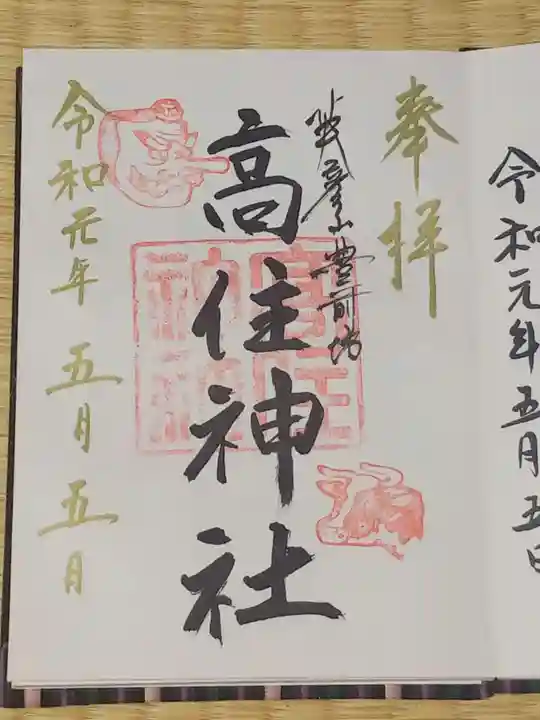 令和元年五月五日
奉拝
英彦山豊前坊
高住神社
令和元年 五月 五月